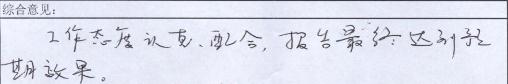 综合意见：
工作态度认真、配合，报告最终达到预
期效果。